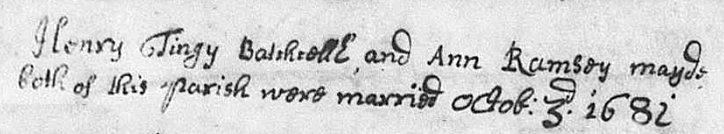 Henry Tingy Batchcellr, and Ann Ramsey mayde
both of this parish were married Octob: 3d: 1681